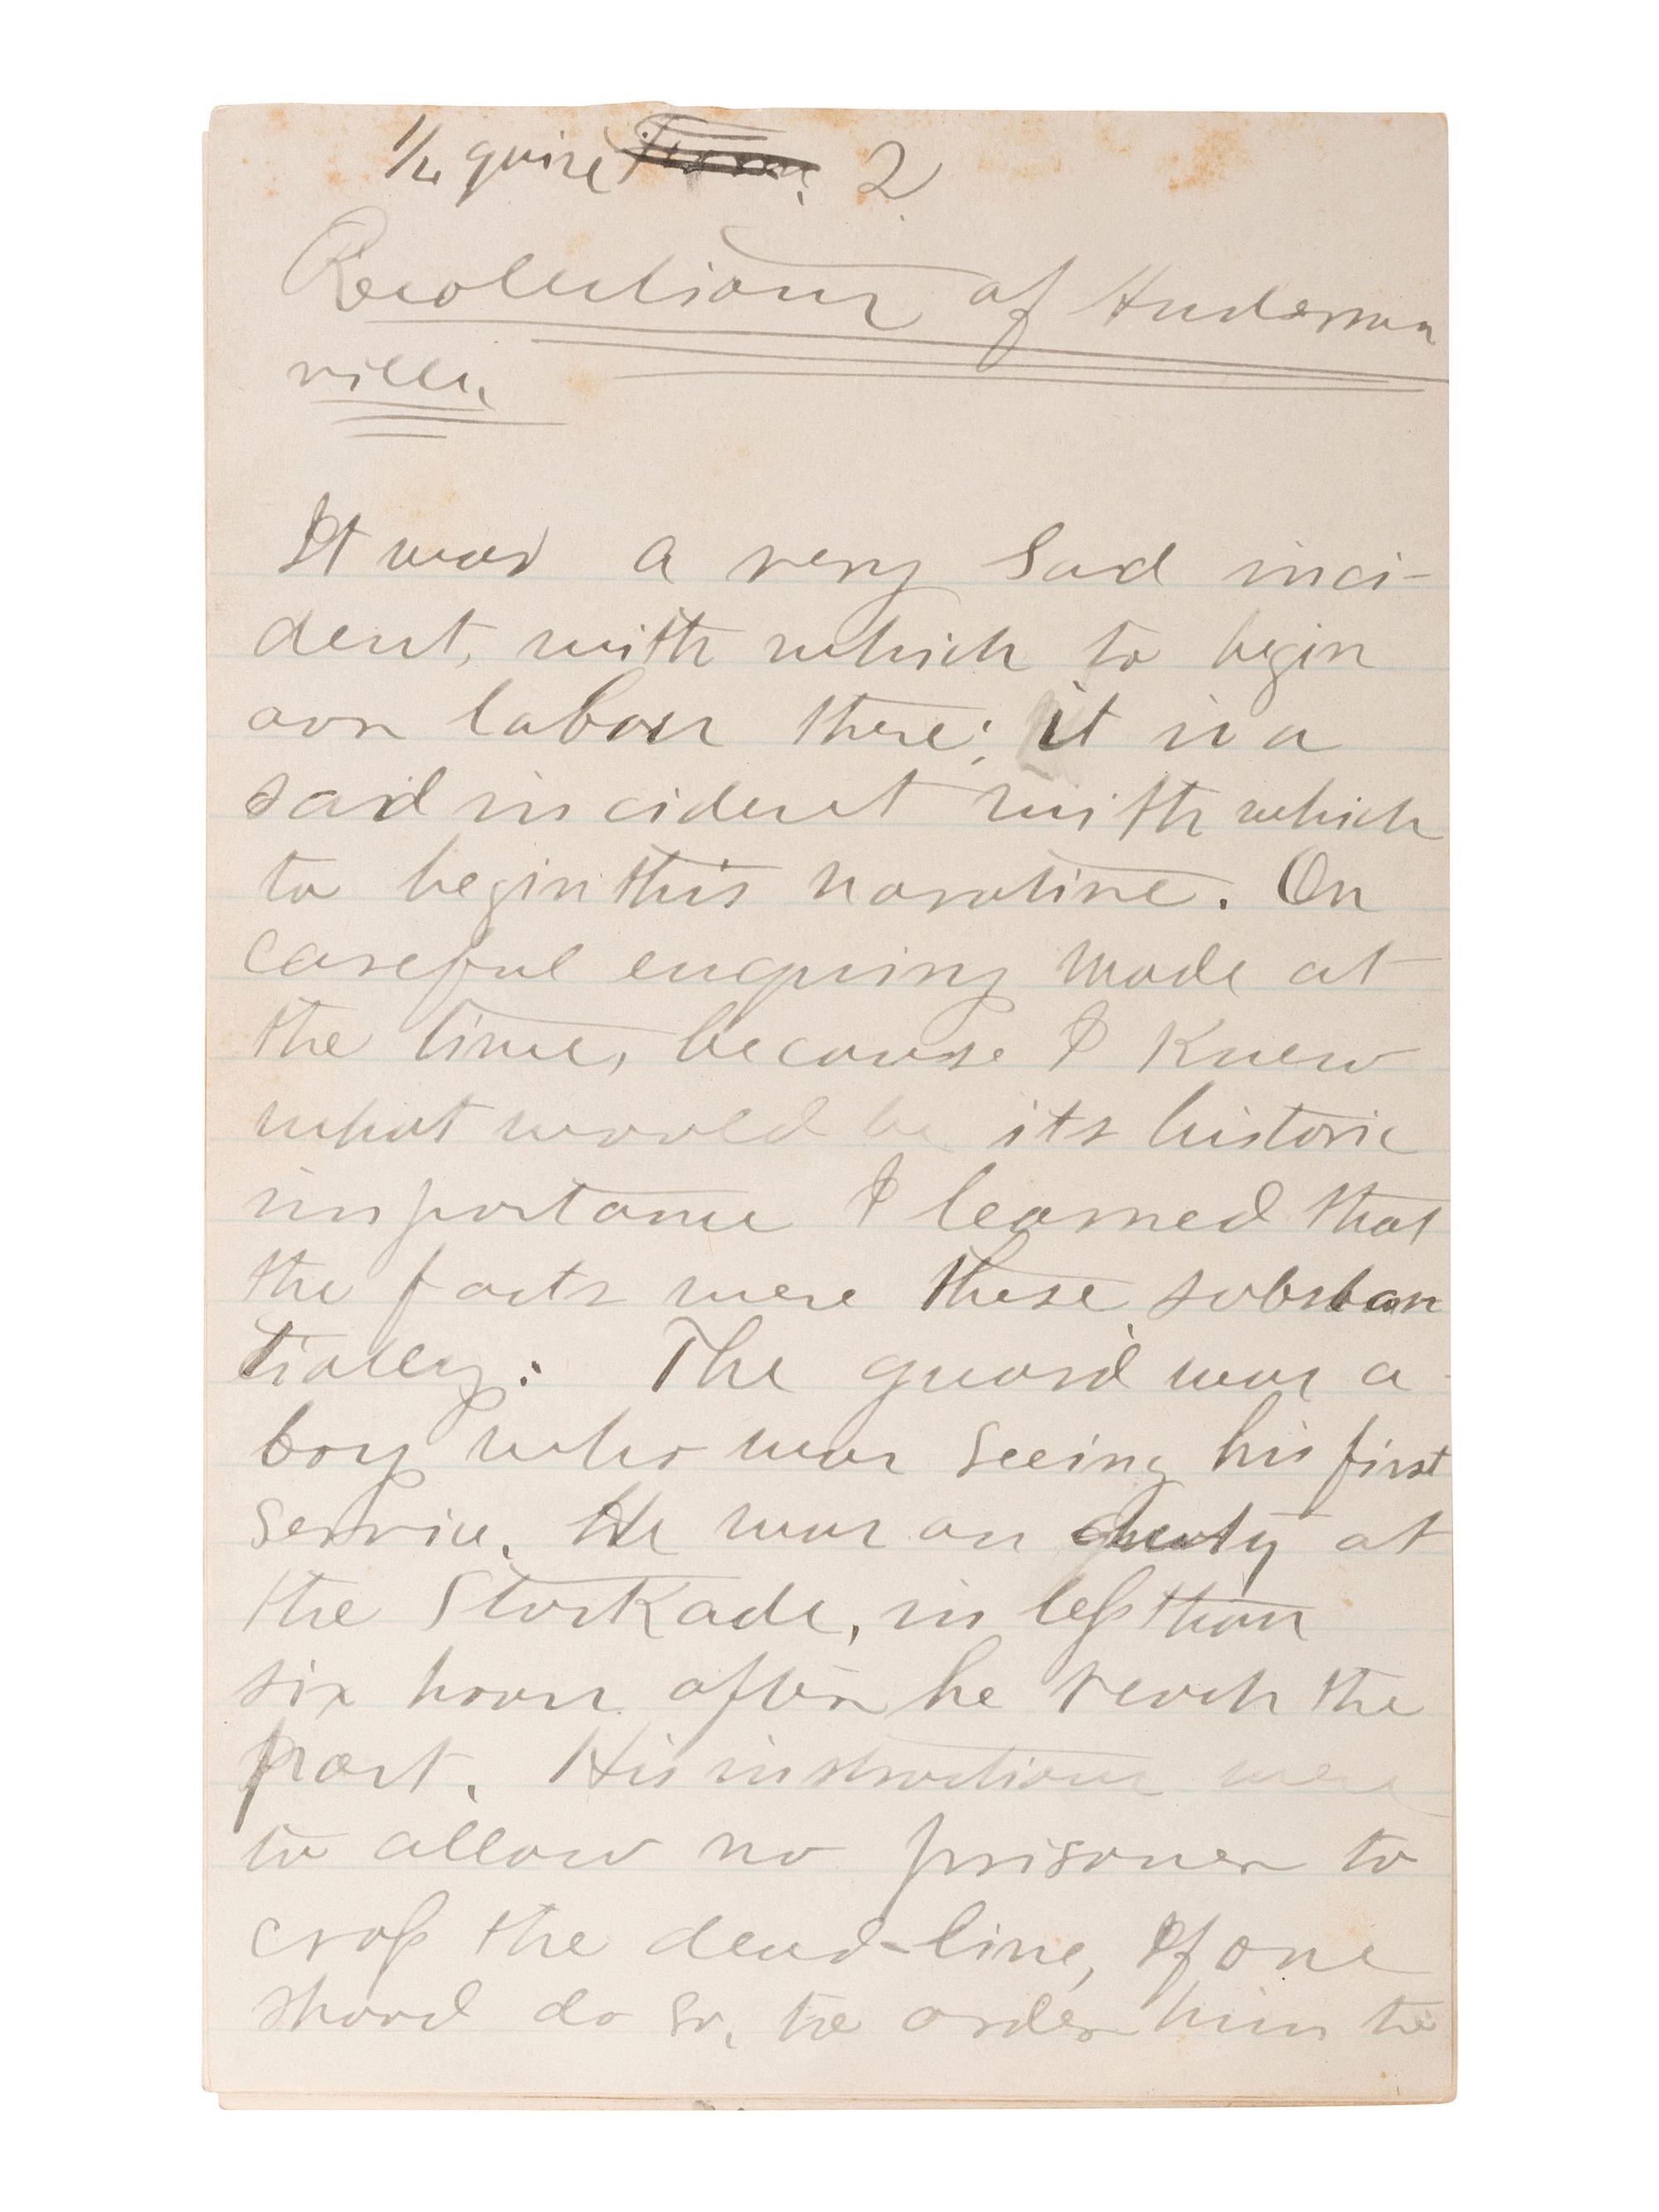 quire 2
Recolections of Anderson
ville.
It was a very sad inci-
dent, with which to begin
our labors there; it is a
sad incident with which
to begin this narative. On
careful enquiry made at
the time, because I knew
what would be its historic
importance I learned that
the facts were these substan
tially: The guard was a
boy who was seeing his first
service. He was on duty at
the Stockade, in less than
six hours after he reach the
post. His instructions were
to allow no prisoner to
cross the dead-line, If one
shoud do so, he order him to